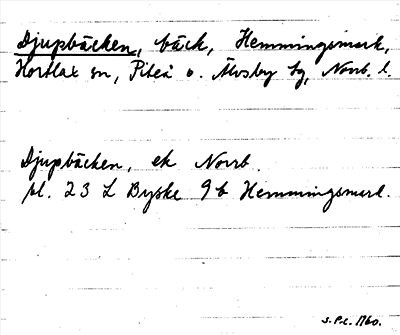 Djupbäcken, bäck, Hemmingsmark,
Hortlax sn, Piteå o. Älvsby tg, Norrb. l.
Djupbäcken, ek Norrb.
bl. 23 L Byske 9b Hemmingsmark.